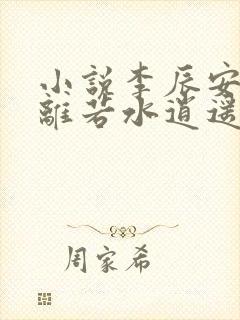 小説李辰安
離若水逍遥
周家希